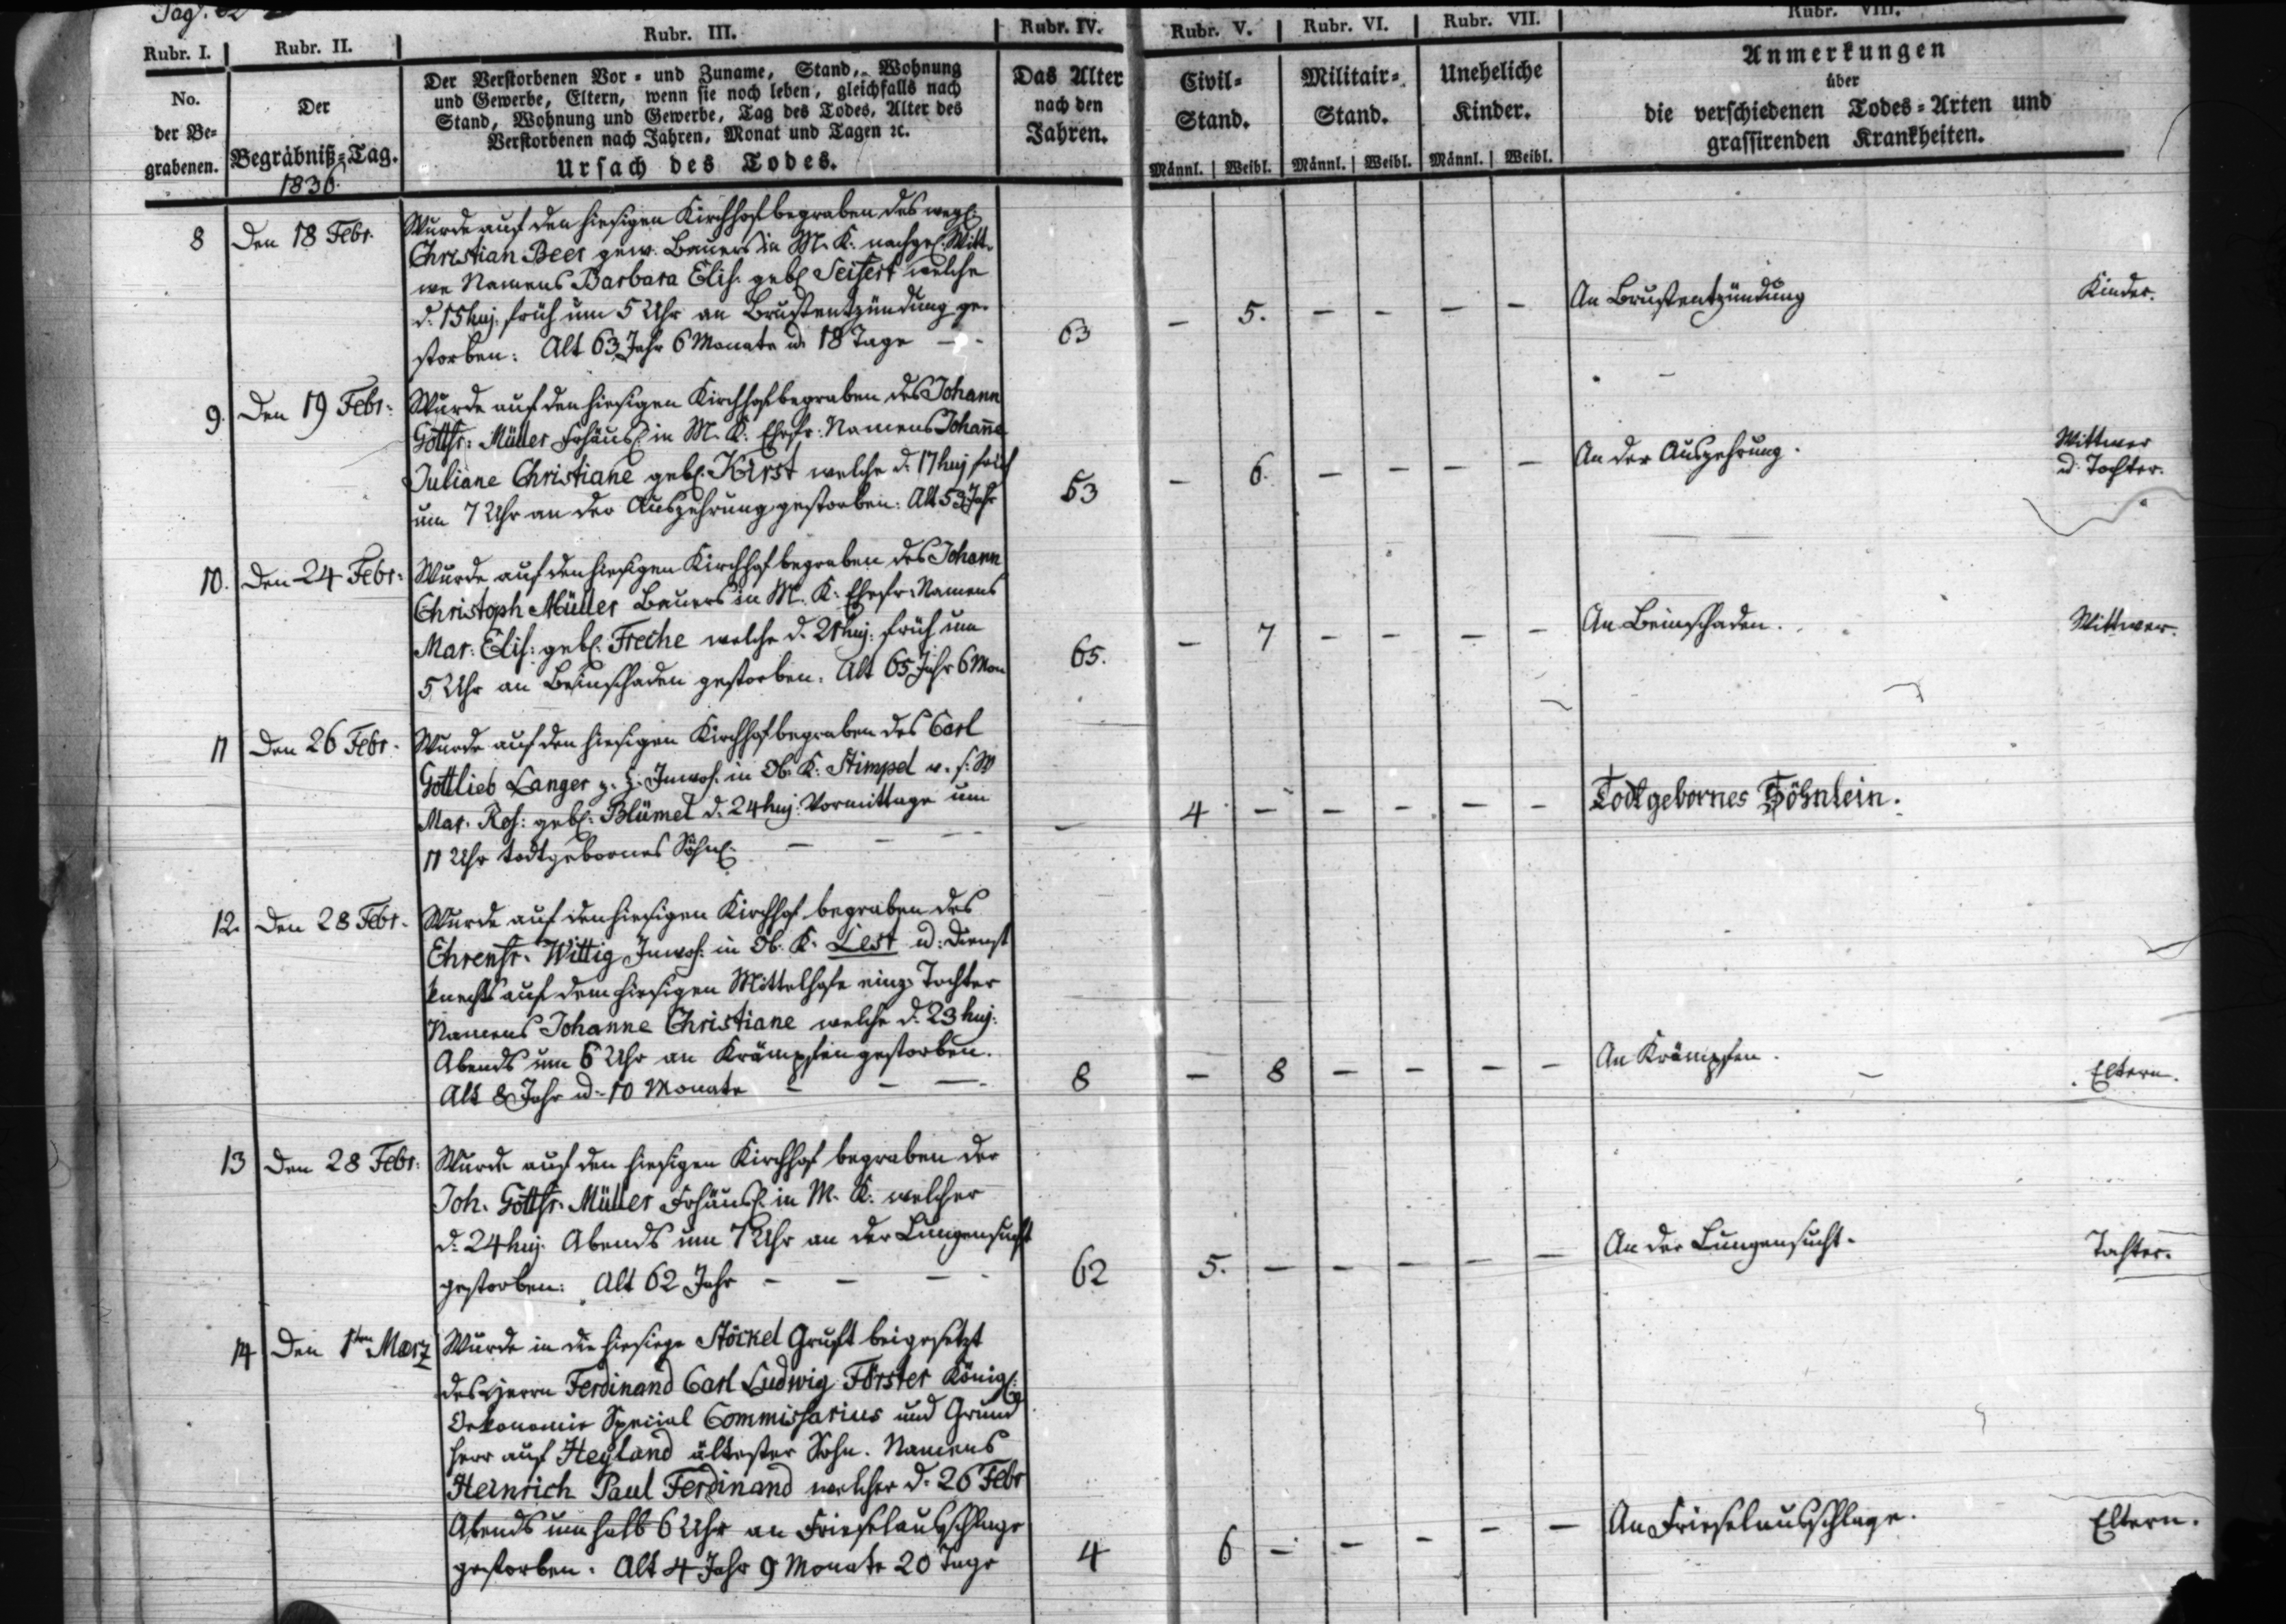 Pag. 62
Rubr. I. Rubr. II. Rubr. III. Rubr. IV. Rubr. V. Rubr. VI. Rubr. VII. Rubr. VIII.
No.
der Be-
grabenen.
Der
Begräbniß-Tag.
1836.
Der Verstorbenen Vor- und Zuname, Stand, Wohnung
und Gewerbe, Eltern, wenn sie noch leben, gleichfalls nach
Stand, Wohnung und Gewerbe, Tag des Todes, Alter des
Verstorbenen nach Jahren, Monat und Tagen ꝛc.
Ursach des Todes.
Das Alter
nach den
Jahren.
Civil-
Stand.
Männl. Weibl.
Militair-
Stand.
Männl. Weibl.
Uneheliche
Kinder.
Männl. Weibl.
Anmerkungen
über
die verschiedenen Todes-Arten und
grassirenden Krankheiten.
8 Den 18 Febr. Wurde auf den hiesigen Kirchhof begraben des weyl.
Christian Beer gew. Bauers in M. K. nachgel. Witt-
we Namens Barbara Elis. geb. Seifert welche
d. 15 huj. früh um 5 Uhr an Brustentzündung ge-
storben: Alt 63 Jahr 6 Monate u. 18 Tage - -
63 - 5. - - - - An Brustentzündung Kinder.
9. Den 19 Febr: Wurde auf den hiesigen Kirchhof begraben des Johann
Gottfr: Müller Frhäusl. in M. K. Ehefr: Namens Johan̅e
Juliane Christiane geb. Kirst welche d. 17 huj früh
um 7 Uhr an der Auszehrung gestorben: Alt 53 Jahr
53 - 6. - - - - An der Auszehrung. Wittwer
u. Tochter.
10. Den 24 Febr: Wurde auf den hiesigen Kirchhof begraben des Johann
Christoph Müller Bauers in M. K. Ehefr: Namens
Mar: Elis: geb. Freche welche d. 21 huj: früh um
5 Uhr an Beinschaden gestorben. Alt 65 Jahr 6 Mon
65. - 7 - - - - An Beinschaden. Wittwer.
11 Den 26 Febr. Wurde auf den hiesigen Kirchhof begraben des Carl
Gottlieb Langer z. Z. Inwoh. in Ob. K. Stimpel v. s. W
Mar. Ros: geb: Blümel d. 24 huj: Vormittags um
11 Uhr todtgebornes Söhnl. - -
- 4 - - - - - Todtgebornes Söhnlein.
12. Den 28 Febr. Wurde auf den hiesigen Kirchhof begraben des
Ehrenfr. Wittig Inwoh. in Ob. K. Lest u: Dienst
knechts auf dem hiesigen Mittelhofe einz. Tochter
Namens Johanne Christiane welche d. 23 huj.
Abends um 6 Uhr an Krämpfen gestorben.
Alt 8 Jahr u: 10 Monate - - -
8 - 8 - - - - An Krämpfen. Eltern.
13 Den 28 Febr: Wurde auf den hiesigen Kirchhof begraben der
Joh. Gottfr. Müller Frhäusl. in M. K. welcher
d. 24 huj. Abends um 7 Uhr an der Lungensucht
gestorben: Alt 62 Jahr - - - -
62 5. - - - - - An der Lungensucht. Tochter.
14 Den 1ten März Wurde in die hiesige Stöckel Gruft beigesetzt
des Herrn Ferdinand Carl Ludwig Förster Königl:
Oekonomie Special Commissarius und Grund
herr auf Heyland ältester Sohn. Namens
Heinrich Paul Ferdinand welcher d. 26 Febr
Abends um halb 6 Uhr an Frieselausschlage
gestorben. Alt 4 Jahr 9 Monate 20 Tage
4 6 - - - - - An Frieselausschlage. Eltern.